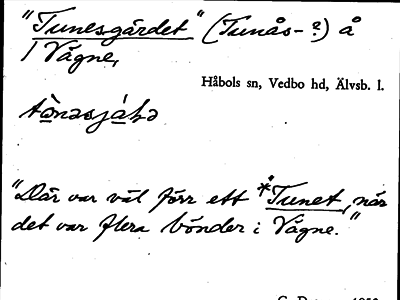 "Tunesgärdet" (Tunås-?) å
/ Vågne,
Håbols sn, Vedbo hd, Älvsb. l.
"Där var väl förr ett *Tunet, när
det var flera bönder i Vågne."